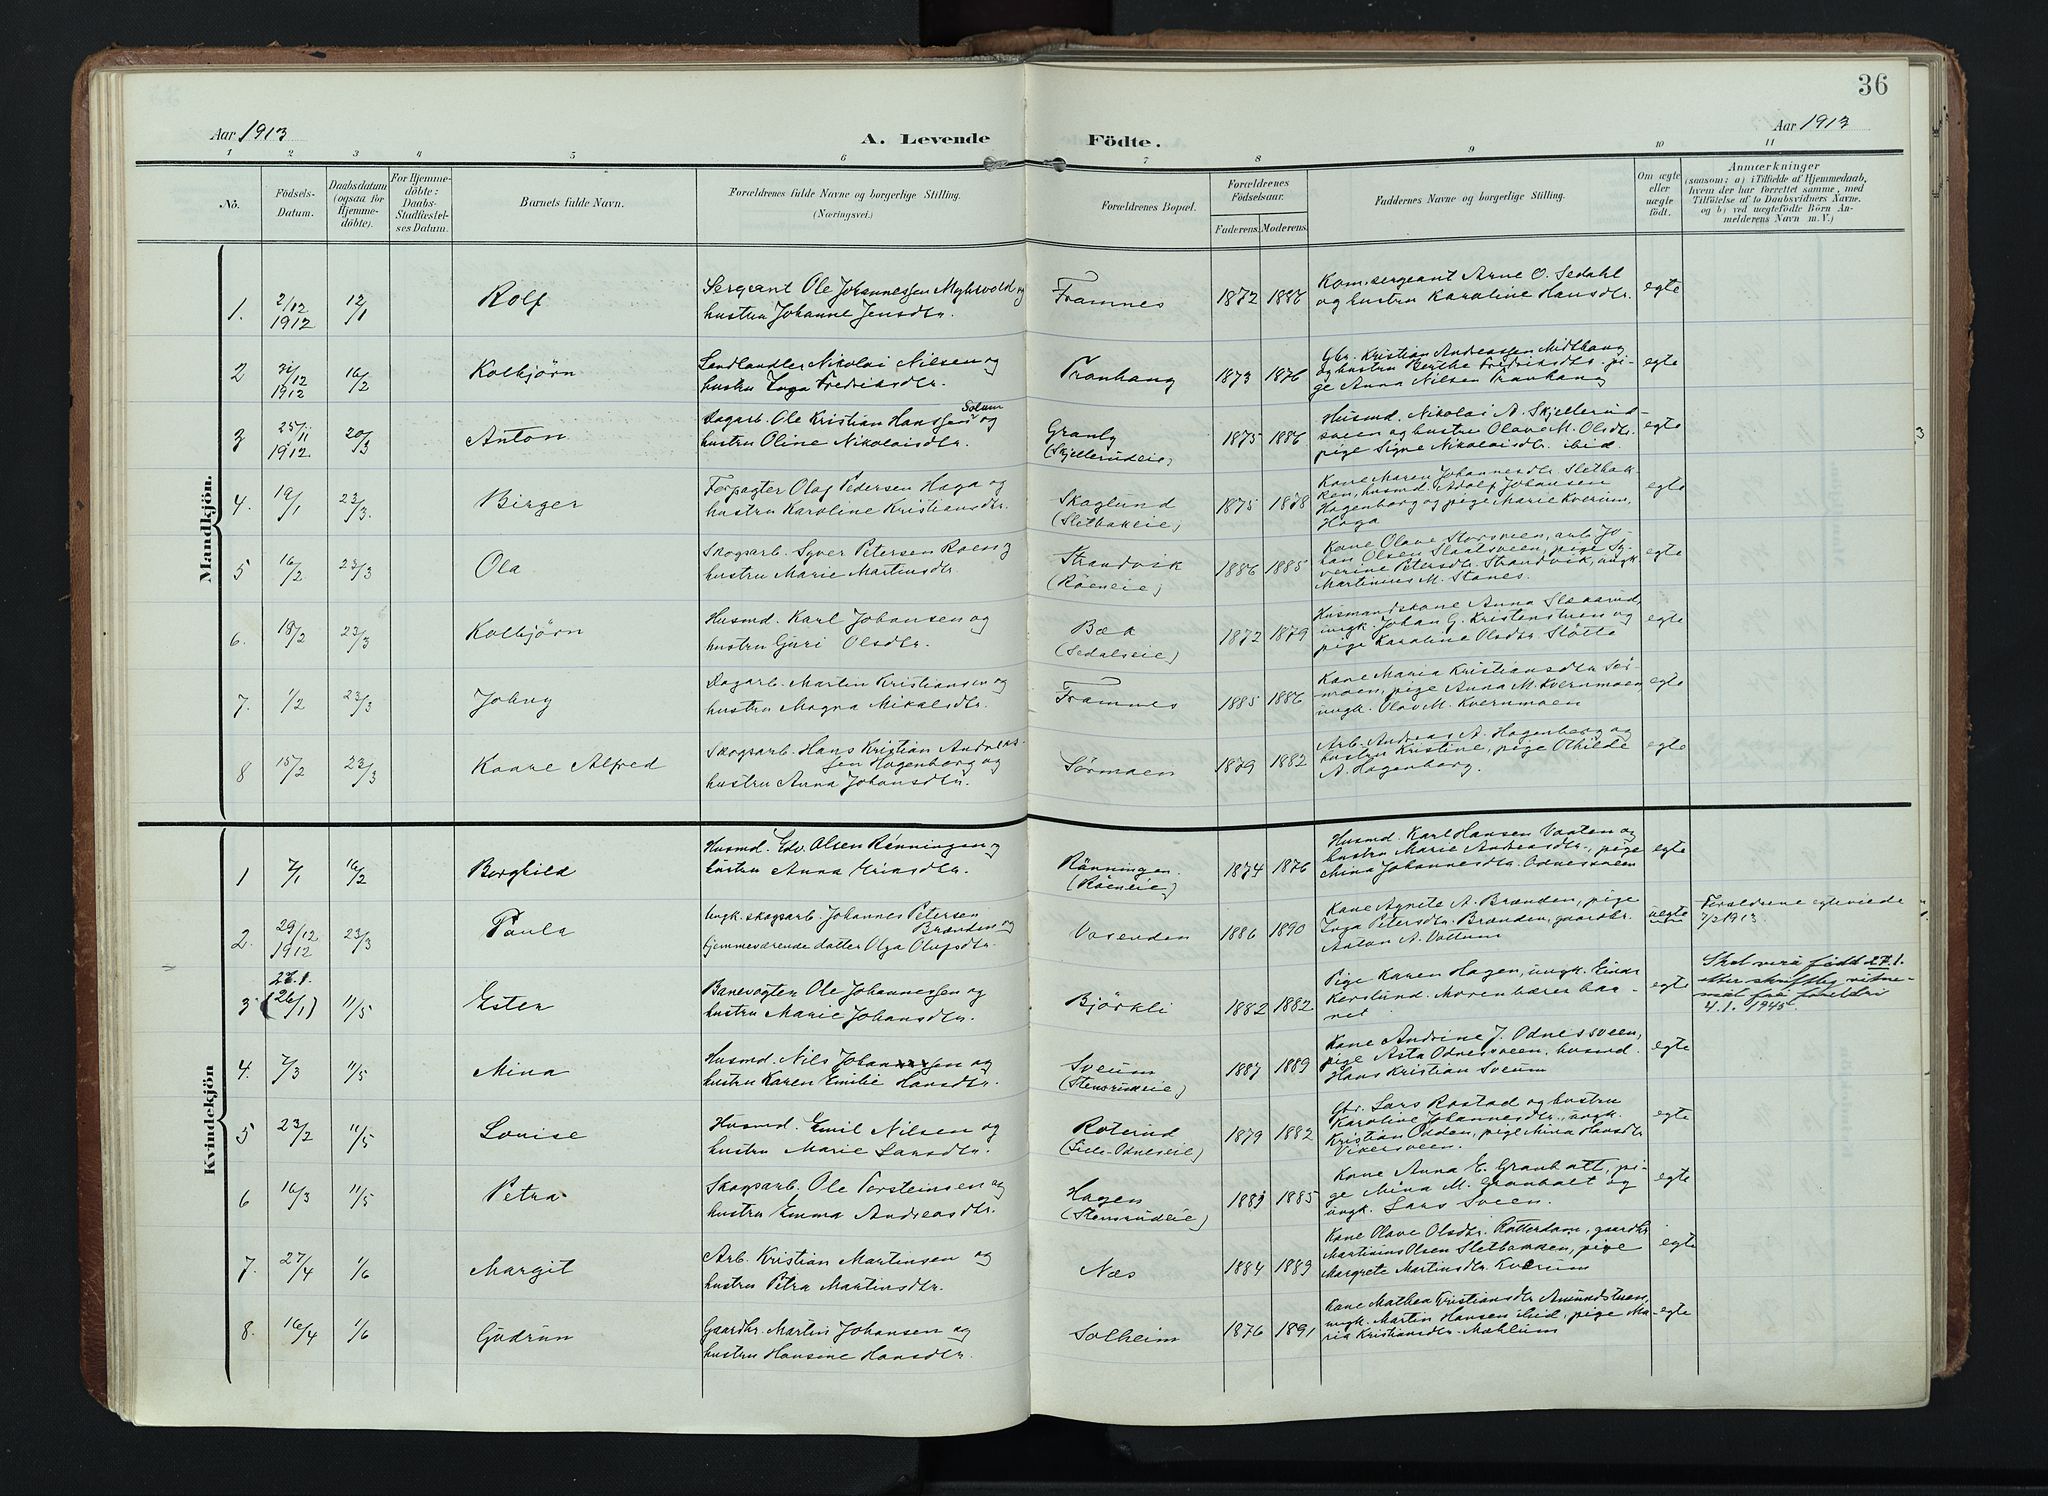 36
Aar 1913
A. Levende
Födte.
Aar 1913
1 2 3 4 5 6 7 8 9 10 11
Nö.
Födsels-
Datum.
Daabsdatum
(ogsaa for
Hjemme-
döbte).
For Hjemme-
döbte:
Daabs-
Stadfæstel-
ses Datum.
Barnets fulde Navn.
Forældrenes fulde Navne og borgerlige Stilling.
(Næringsvei.)
Forældrenes Bopæl.
Forældrenes
Födselsaar.
Faderens. Moderens.
Faddernes Navne og borgerlige Stilling.
Om ægte
eller
uægte
født.
Anmærkninger
(saasom: a) i Tilfælde af Hjemmedaab,
hvem der har forrettet samme, med
Tilföielse af to Daabsvidners Navne,
og b) ved uægtefödte Börn An-
melderens Navn m. V.)
Mandkjön.
1. 2/12 1912 12/1 Rolf
Sergeant Ole Johannessen Myhrvold og
hustru Johanne Jensdtr.
Framnes 1872 1886
Kom.sergeant Arne O. Sedahl
og hustru Karoline Hansdtr.
egte
2 31/12 1912 16/2 Kolbjørn
Landhandler Nikolai Nilsen og
hustru Inga Fredriksdtr.
Tranhaug 1873 1876
Gbr. Kristian Andreassen Midthaug
og hustru Berthe Fredriksdtr., pi-
ge Anna Nilsen Tranhaug
egte
3 25/11 1912. 20/3 Anton
Dagarb. Ole Kristian Hanssen Solum og
hustru Oline Nikolaisdtr.
Granly
(Skjellerudeie)
1875 1886
Husmd. Nikolai A. Skjellerud-
sveen og hustru Olave M. Olsdtr.
pige Signe Nikolaisdtr. ibid
egte
4. 19/1 23/3. Birger
Forpagter Olaf Pedersen Haga og
hustru Karoline Kristiansdtr.
Skoglund
(Sletbakeie)
1875 1878
Kone Maren Johannesdtr. Sletbak-
ken, husmd. Adolf Johansen
Hagenborg og pige Marie Kverum,
Haga
egte
5 16/2. 23/3 Ola
Skogsarb. Syver Petersen Roen og
hustru Marie Martinsdtr.
Strandvik
(Röeneie)
1886 1885
Kone Olave Storsveen, arb. Jo-
han Olsen Slaatsveen, pige Sy-
verine Petersdtr. Strandvik, ungk.
Martinius M. Stanes.
egte
6. 18/2 23/3 Kolbjörn
Husmd. Karl Johansen og
hustru Guri Olsdtr.
Bæk
(Sedalseie)
1872 1879
Husmandskone Anna Slaarud,
ungk. Johan G. Kristenstuen og
pige Karoline Olsdtr. Støtta
egte
7. 1/2 23/3 Johny
Dagarb. Martin Kristiansen og
hustru Magna Mikalsdtr.
Framnes 1885 1886
Kone Maria Kristiansdtr. Sør-
moen, pige Anna M. Kvernmoen
ungk. Olav M. Kvernmoen
egte
8 15/2 23/3 Kaare Alfred
Skogsarb. Hans Kristian Andreas-
sen Hagenborg og
hustru Anna Johansdtr.
Sörmoen 1879 1882
Arb. Andreas A. Hagenborg og
hustru Kristine, pige Othilde
A. Hagenborg.
egte
Kvindekjön
1 7/1 16/2 Borghild
Husmd. Edv. Olsen Rönningen og
hustru Anna Eriksdtr.
Rönningen.
(Röeneie)
1874 1876
Husmd. Karl Hansen Vaaten og
hustru Marie Andreasdtr., pige
Mina Johannesdtr. Odnessveen
egte
2. 29/12 1912 23/3 Paula
Ungk. skogsarb. Johannes Petersen
Brænden og
hjemmeværende datter Olga Olufsdtr.
Vasenden 1886 1890
Kone Agnete A. Brænden, pige
Inga Petersdtr. Brænden, gaardbr.
Anton A. Vattum
uegte
Foreldrene egteviede
7/2 1913.
3 27.1. (26/1) 11/5 Ester
Banevogter Ole Johannessen og
hustru Marie Johansdtr.
Björkli 1882 1882
Pige Karen Hagen, ungk. Einar
Korslund. Moren bærer baa-
ret
egte
Skal vera född 27.1.
etter skriftleg vitne-
mål frå foreldri
4.1.1945
4. 7/3 11/5 Mina
Husmd. Nils Johansen og
hustru Karen Emilie Hansdtr.
Sveum
(Stensrudeie)
1887 1889
Kone Andrine J. Odnessveen,
pige Asta Odnessveen, husmd.
Hans Kristian Sveum
egte
5 23/2 11/5 Lovise
Husmd. Emil Nilsen og
hustru Marie Larsdtr.
Roterud
1879 1882
Gbr. Lars Rostad og hustru
Karoline Johannesdtr., ungk.
Kristian Odden, pige Mina Hansdtr
Vikersveen.
egte
6 16/3 11/5 Petra
Skogsarb. Ole Torsteinsen og
hustru Emma Andreasdtr.
Hagen
(Stensrudeie)
1883 1885
Kone Anna E. Granhalt, pi-
ge Mina M. Granhalt og
ungk. Lars Sveen.
egte
7. 27/4 1/6 Margit
Arb. Kristian Martinsen og
hustru Petra Martinsdtr.
Næs 1884 1889
Kone Olave Olsdtr. Rotterdam, gaardbr
Martinius Olsen Sletbakken, pige
Margrete Martinsdtr. Kverum
egte
8. 16/4 1/6 Gudrun
Gaardbr. Martin Johansen og
hustru Hansine Hansdtr.
Solheim 1876 1891
Kone Mathea Kristiansdtr Amundstuen,
ungk. Martin Hansen ibid, pige Ma-
ria Kristiansdtr. Mæhlum
egte